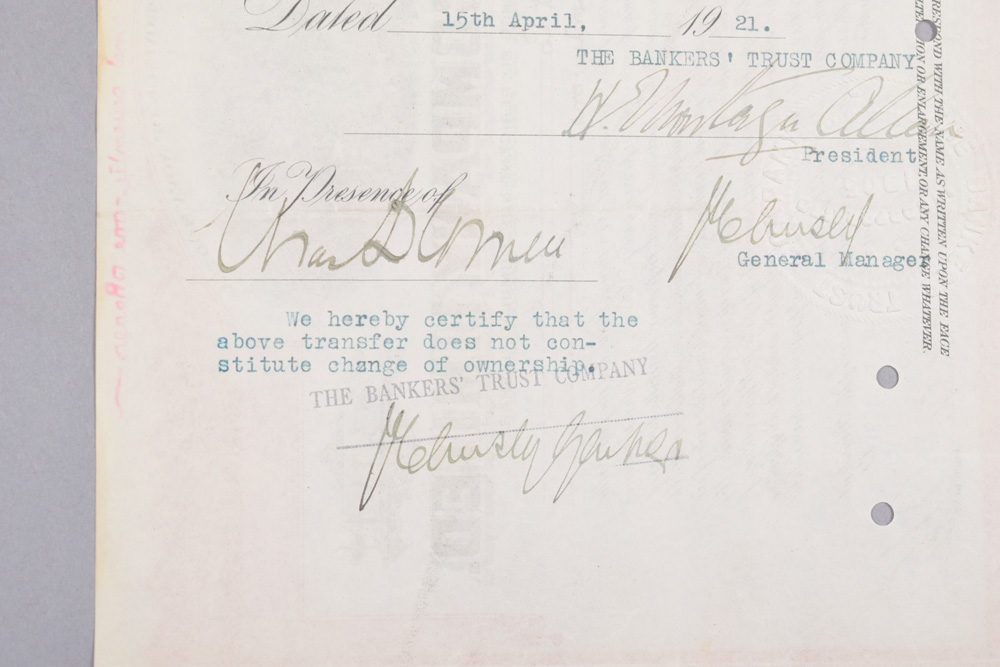 Dated 15th April, 1921.
THE BANKERS' TRUST COMPANY
H. Montagu Allan
President
In Presence of
General Manager
We hereby certify that the
above transfer does not con-
stitute change of ownership.
THE BANKERS' TRUST COMPANY
RESPOND WITH THE NAME AS WRITTEN UPON THE FACE
ION OR ENLARGEMENT, OR ANY CHANGE WHATEVER.